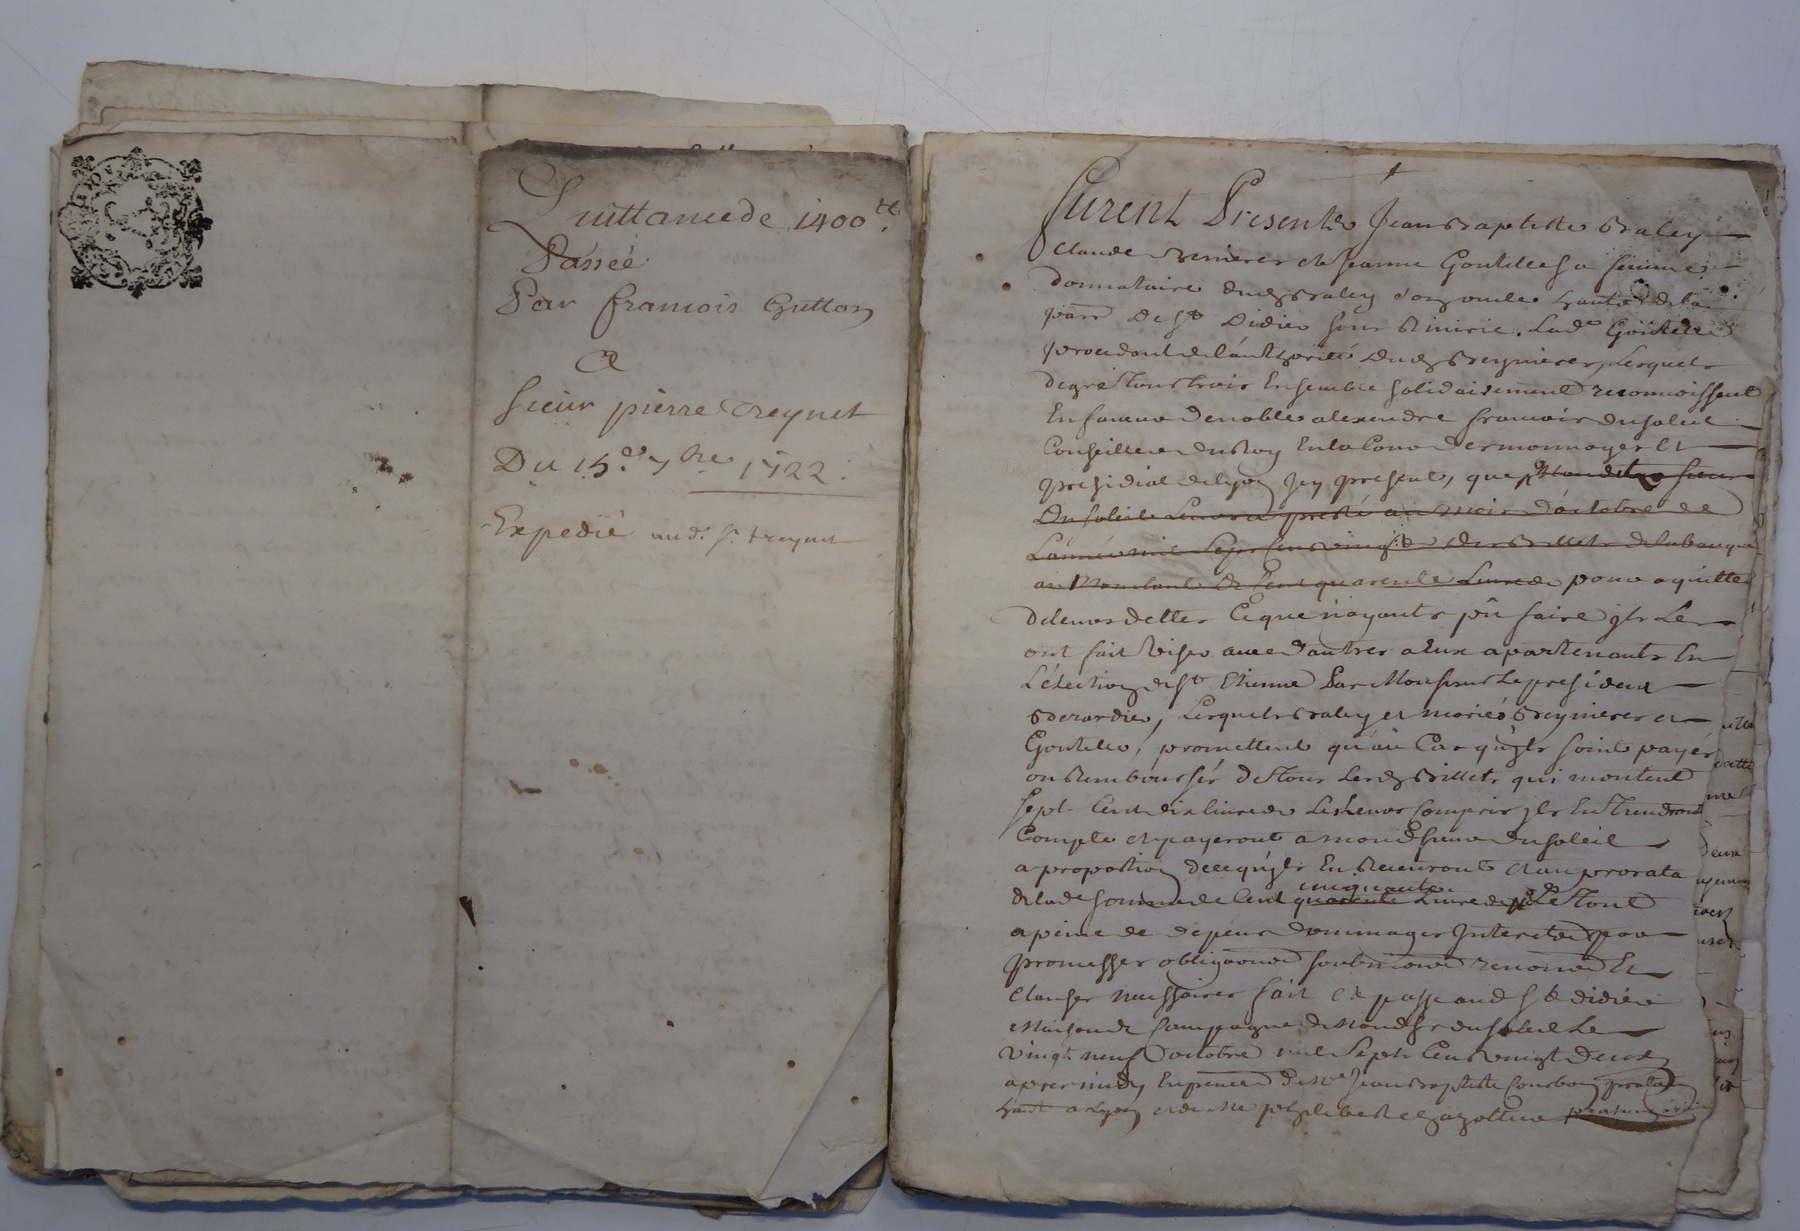 Quittance de 1400 tt.
Passée
Par francois Gutton
A
Sieur pierre Treynet
Du 15.e 7bre 1722.
Expedié aud. Sr. treynet
furent Presents Jean Baptiste Braley
Claude et Jeanne Goutelle sa femme
donnataire dud Braley
parr de St Didier sous Lad Goutelle
procedant de l'authorité dud Breynieres, Lesquels
de gré tous trois Ensemble solidairement reconnoissent
En faveur de noble alexendre francois dusoleil
Conseiller du Roy En la Cour des monnoyes Et
presidial de lyon Icy present, que mondit sieur
Dusoleil Leur a presté au mois d'octobre de
L'année mil sept Cent vingt des Billets de la banque
au Montant de Cent quarente Livres pour aquitter
de leurs dettes Et que n'ayants pû faire ils Les
ont fait viser avec d'autres a Eux apartenants En
L'élection de St Etienne Par Monsieur Le president
Lesquels Braley et mariés Breynieres et
Goutelle, promettent qu'au Cas qu'ils soint payés
ou Remboursés de tous Lesd Billets qui montent
sept Cent dix livres Les leurs Compris ils En tiendront
Compte et payeront a mond sieur dusoleil
a proportion de ce qu'ils En Recevront et au prorata
de lad somme de Cent quarente cinquante Livres Le tout
a peine de depens dommages Interets par
promesses obligaons soubmissions renonons Et
Clauses necessaires fait et passé aud St didier
Maison de Campagne de Mond Sr dusoleil Le
vingt neuf octobre mil sept Cent vingt deux
apres midy En presence de Me Jean Baptiste Courbon
a Lyon et de Me